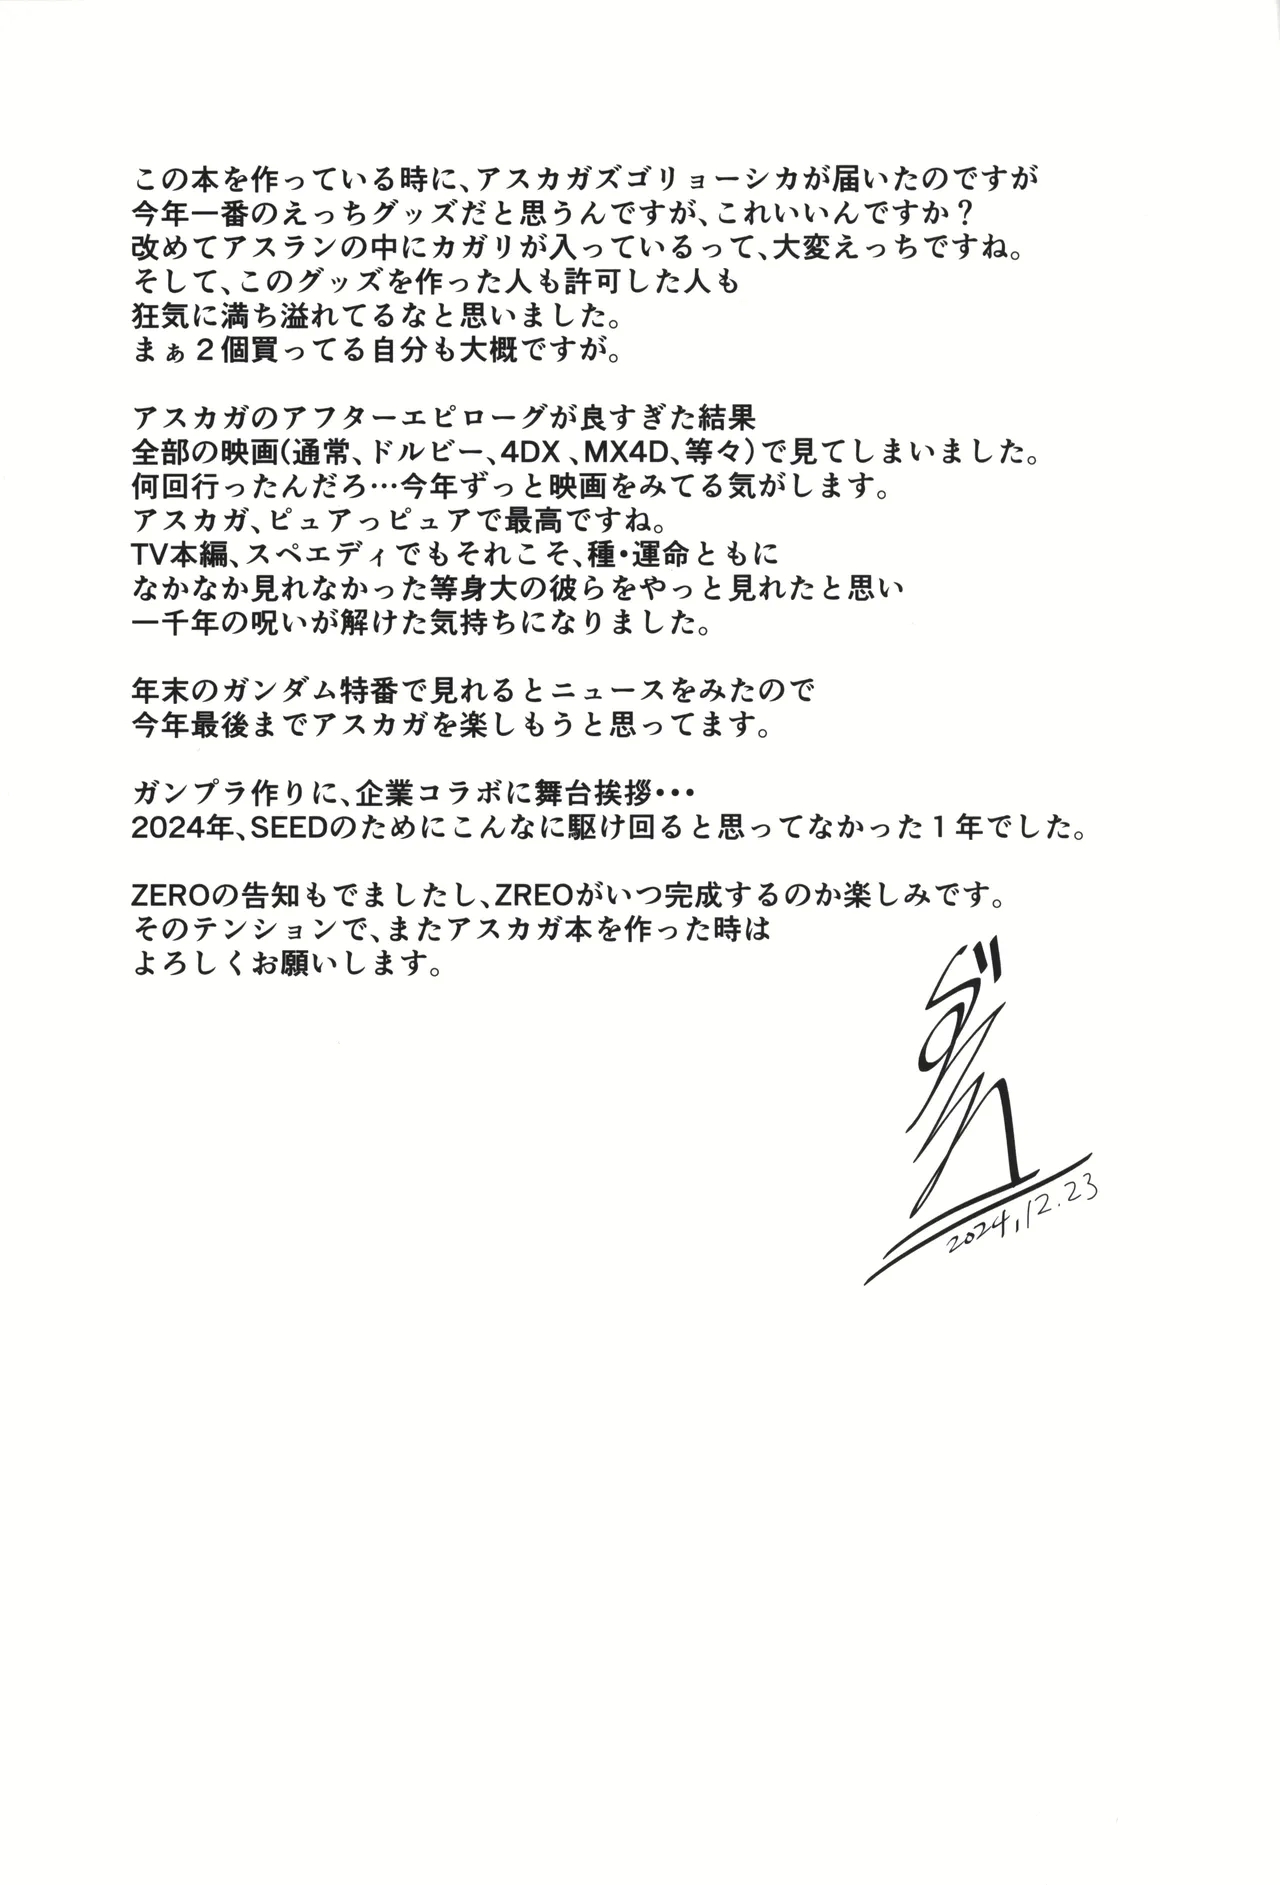 この本を作っている時に、アスカガズゴリョーシカが届いたのですが
今年一番のえっちグッズだと思うんですが、これいいんですか？
改めてアスランの中にカガリが入っているって、大変えっちですね。
そして、このグッズを作った人も許可した人も
狂気に満ち溢れてるなと思いました。
まぁ２個買ってる自分も大概ですが。
アスカガのアフターエピローグが良すぎた結果
全部の映画(通常、ドルビー、4DX、MX4D、等々)で見てしまいました。
何回行ったんだろ…今年ずっと映画をみてる気がします。
アスカガ、ピュアっピュアで最高ですね。
TV本編、スペエディでもそれこそ、種・運命ともに
なかなか見れなかった等身大の彼らをやっと見れたと思い
一千年の呪いが解けた気持ちになりました。
年末のガンダム特番で見れるとニュースをみたので
今年最後までアスカガを楽しもうと思ってます。
ガンプラ作りに、企業コラボに舞台挨拶・・・
2024年、SEEDのためにこんなに駆け回ると思ってなかった１年でした。
ZEROの告知もでましたし、ZREOがいつ完成するのか楽しみです。
そのテンションで、またアスカガ本を作った時は
よろしくお願いします。
2024,12.23